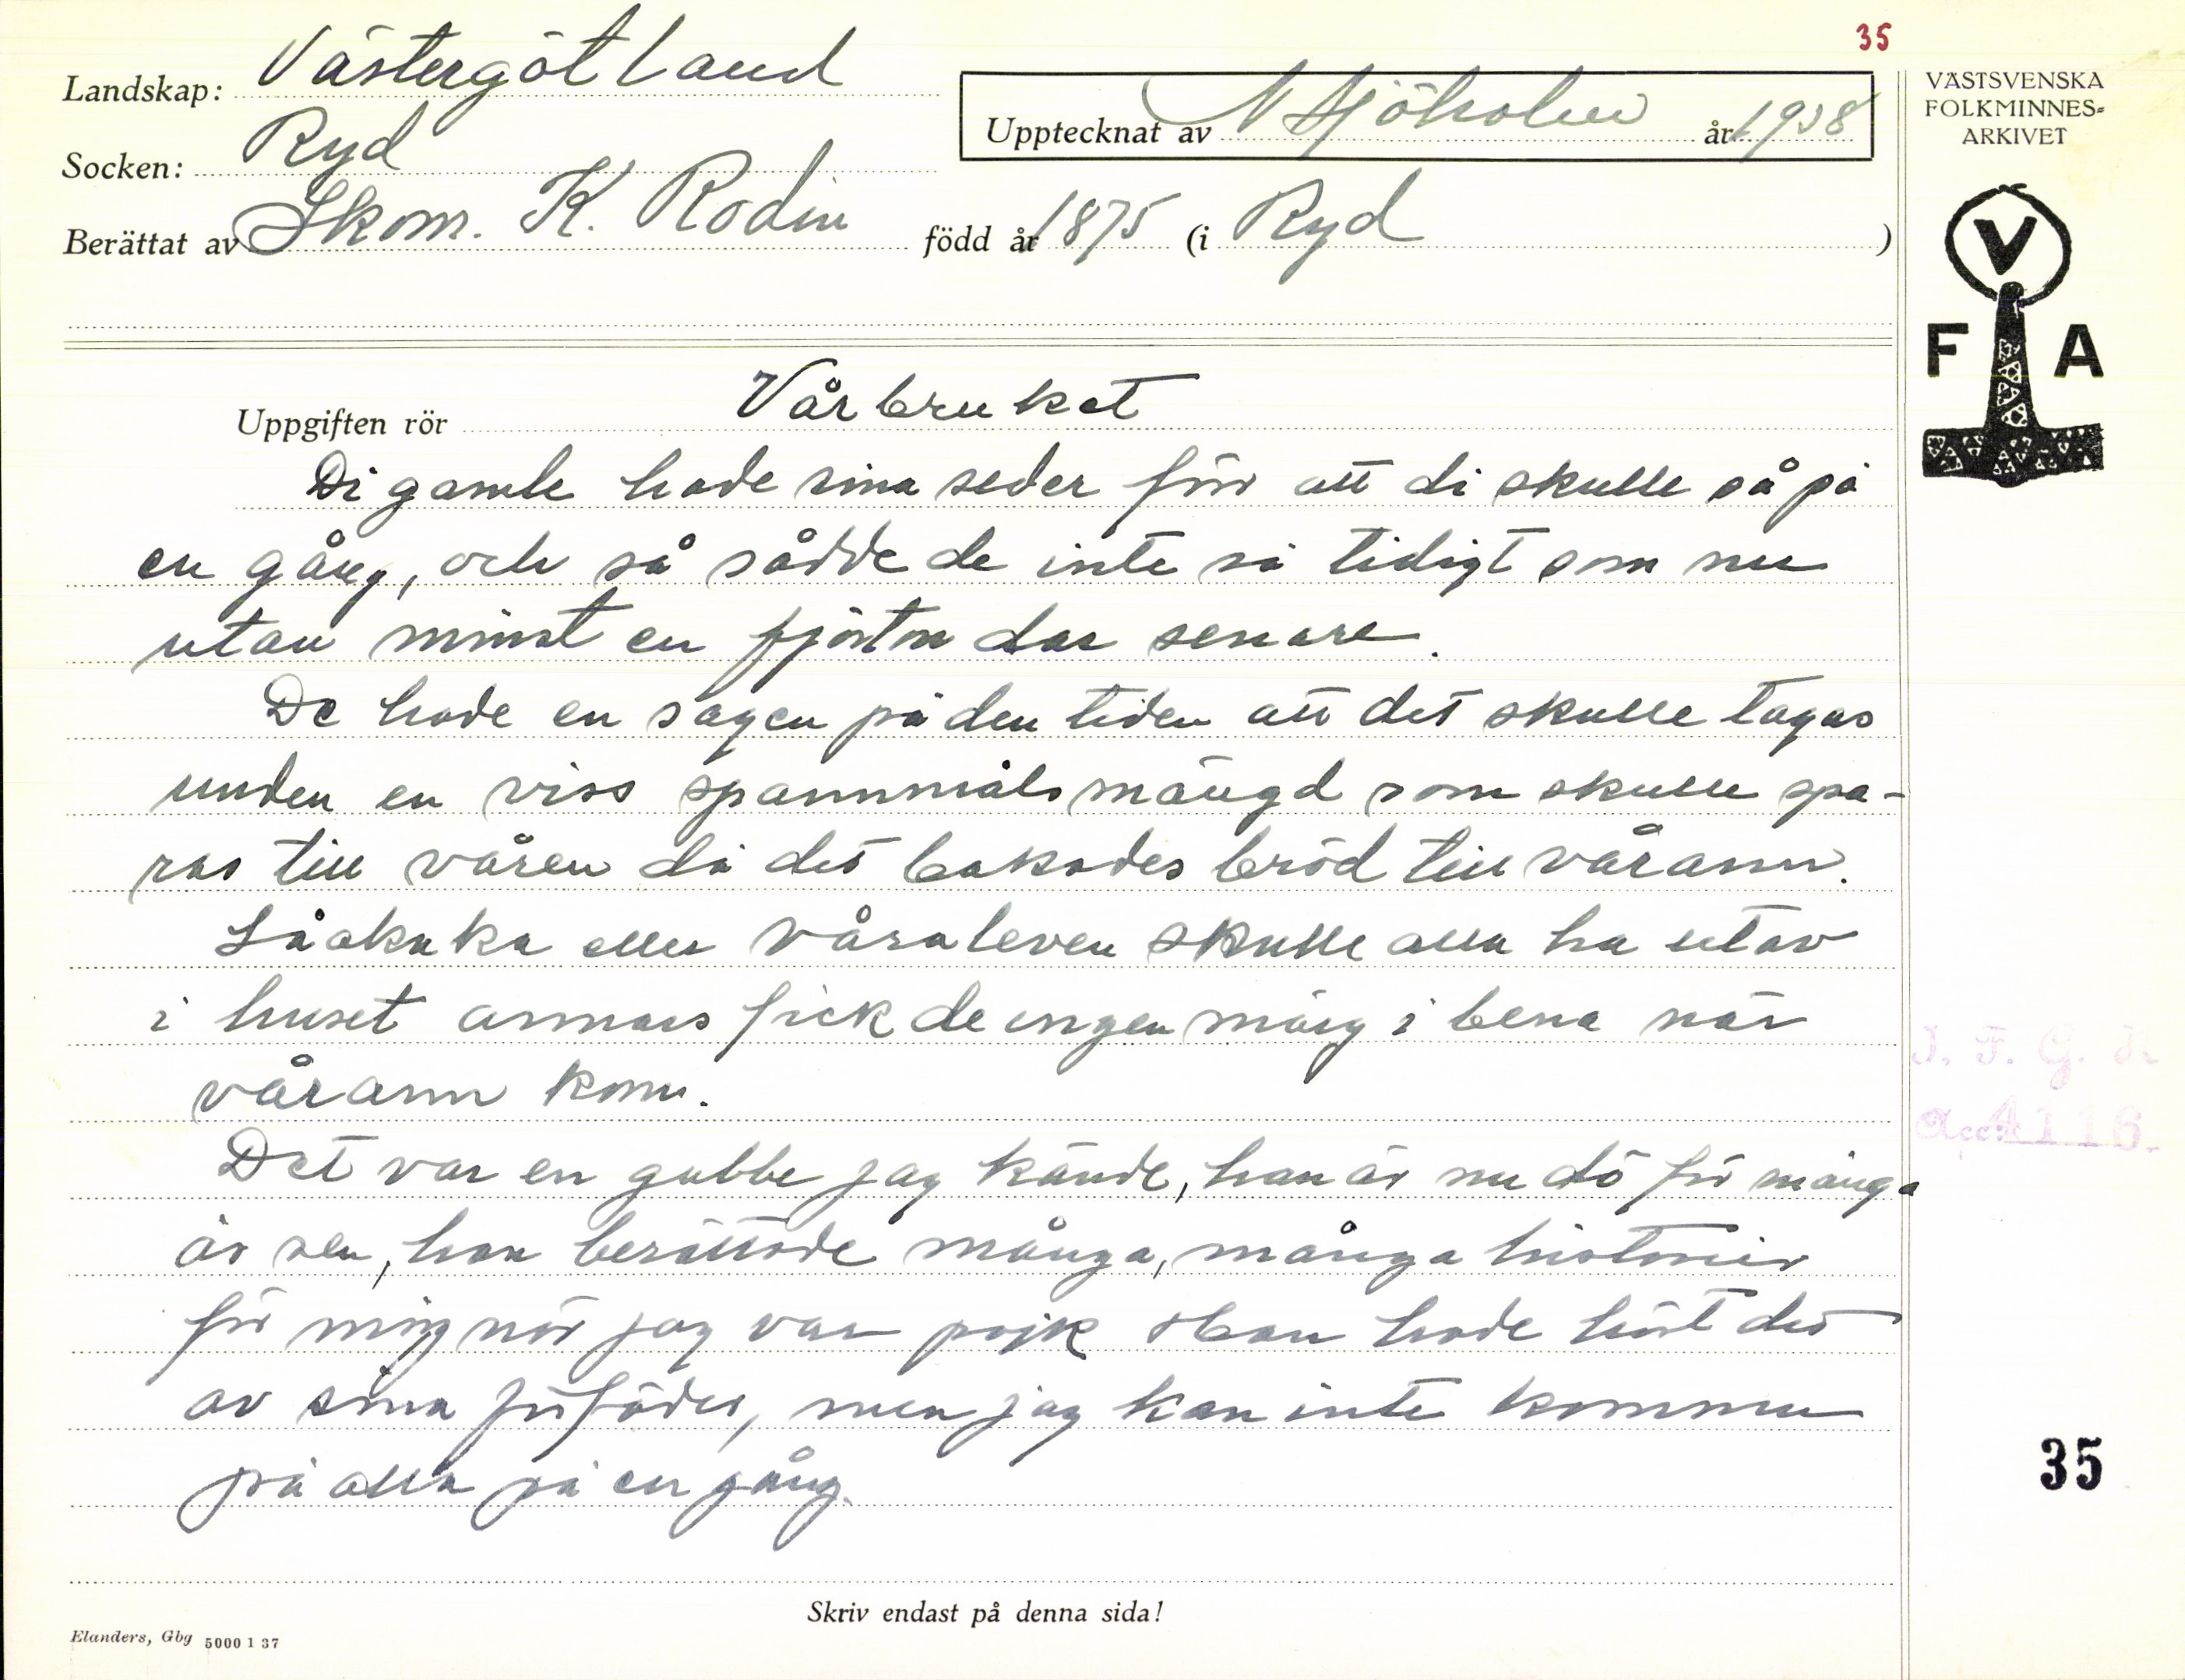 35
Landskap: Västergötland
Upptecknat av N Sjöholm år 1938
VÄSTSVENSKA
FOLKMINNES=
ARKIVET
Socken: Ryd
Berättat av Skom. K. Rodin född år 1875 (i Ryd )
V
F A
Uppgiften rör Vårbruket
Di gamle hade sina seder för att di skulle så på
en gång, och så sådde de inte så tidigt som nu
utan minst en fjorton dar senare.
De hade en sägen på den tiden att det skulle tagas
unden en viss spannmålsmängd som skulle spa-
ras till våren då det bakades bröd till vårann.
Såakaka eller våraleven skulle alla ha utav
i huset annars fick de ingen märg i bena när
vårann kom.
Det var en gubbe jag kände, han är nu dö för många
år sen, han berättade många, många historier
för mig när jag var pojk Han hade hört det
av sina förfäder, men jag kan inte komma
på alla på en gång.
I. F. G. H
Acc. 4116.
35
Skriv endast på denna sida!
Elanders, Gbg 5000 1 37